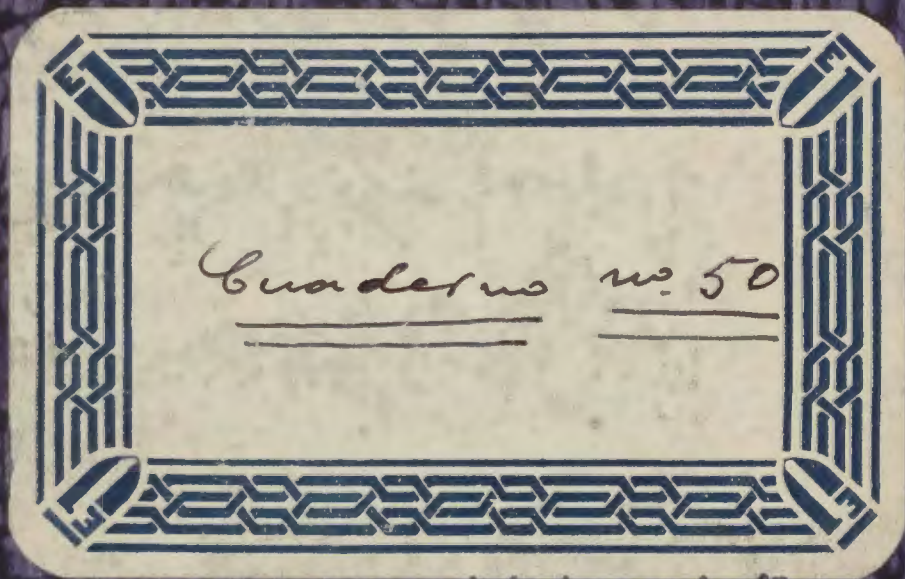 Cuaderno nº 50